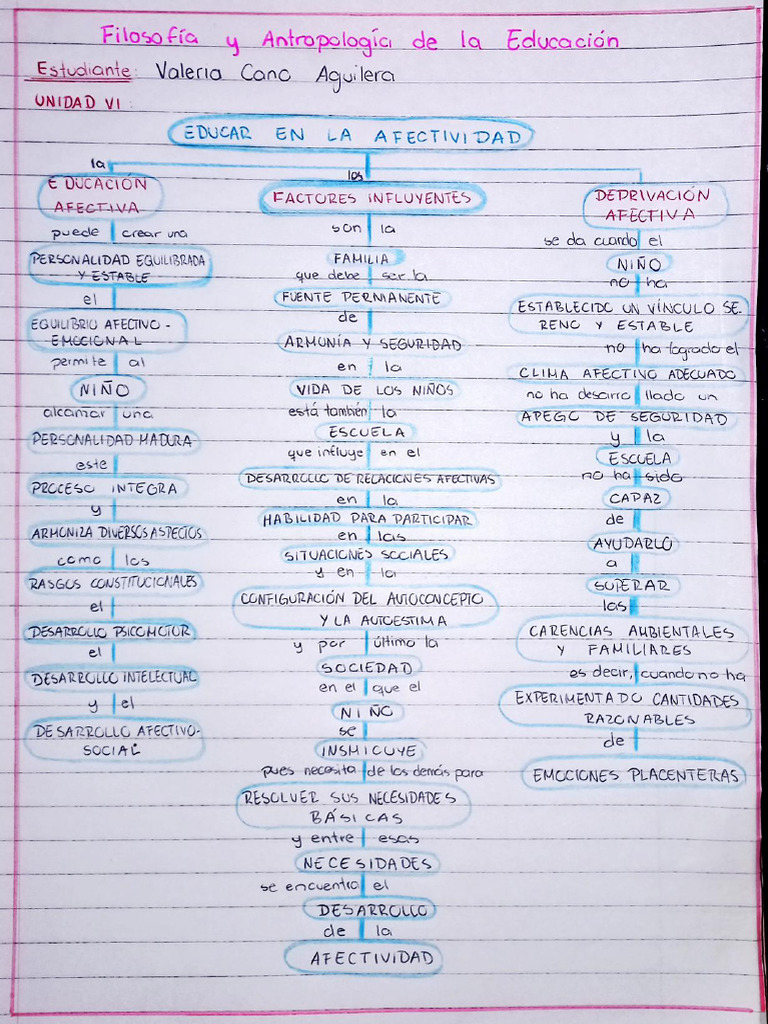 Filosofía y Antropología de la Educación
Estudiante: Valeria Cano Aguilera
UNIDAD VI:
EDUCAR EN LA AFECTIVIDAD
la
EDUCACIÓN
AFECTIVA
puede crear una
PERSONALIDAD EQUILIBRADA
Y ESTABLE
el
EQUILIBRIO AFECTIVO-
EMOCIONAL
permite al
NIÑO
alcanzar una
PERSONALIDAD MADURA
este
PROCESO INTEGRA
y
ARMONIZA DIVERSOS ASPECTOS
como los
RASGOS CONSTITUCIONALES
el
DESARROLLO PSICOMOTOR
el
DESARROLLO INTELECTUAL
y el
DESARROLLO AFECTIVO-
SOCIAL
los
FACTORES INFLUYENTES
son la
FAMILIA
que debe ser la
FUENTE PERMANENTE
de
ARMONÍA Y SEGURIDAD
en la
VIDA DE LOS NIÑOS
está también la
ESCUELA
que influye en el
DESARROLLO DE RELACIONES AFECTIVAS
en la
HABILIDAD PARA PARTICIPAR
en las
SITUACIONES SOCIALES
y en la
CONFIGURACIÓN DEL AUTOCONCEPTO
Y LA AUTOESTIMA
y por último la
SOCIEDAD
en el que el
NIÑO
se
INSMICUYE
pues necesita de los demás para
RESOLVER SUS NECESIDADES
BÁSICAS
y entre esas
NECESIDADES
se encuentra el
DESARROLLO
de la
AFECTIVIDAD
DEPRIVACIÓN
AFECTIVA
se da cuando el
NIÑO
no ha
ESTABLECIDO UN VÍNCULO SE.
RENO Y ESTABLE
no ha logrado el
CLIMA AFECTIVO ADECUADO
no ha desarrollado un
APEGO DE SEGURIDAD
y la
ESCUELA
no ha sido
CAPAZ
de
AYUDARLO
a
SUPERAR
las
CARENCIAS AMBIENTALES
Y FAMILIARES
es decir, cuando no ha
EXPERIMENTADO CANTIDADES
RAZONABLES
de
EMOCIONES PLACENTERAS